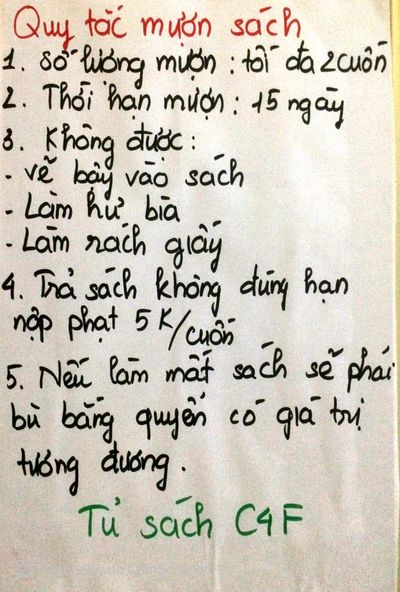 Quy tắc mượn sách
1. Số lượng mượn : tối đa 2 cuốn
2. Thời hạn mượn : 15 ngày
3. Không được :
- vẽ bậy vào sách
- Làm hư bìa
- Làm rách giấy
4. Trả sách không đúng hạn
nộp phạt 5K/cuốn
5. Nếu làm mất sách sẽ phải
bù bằng quyển có giá trị
tương đương.
Tủ sách C4F